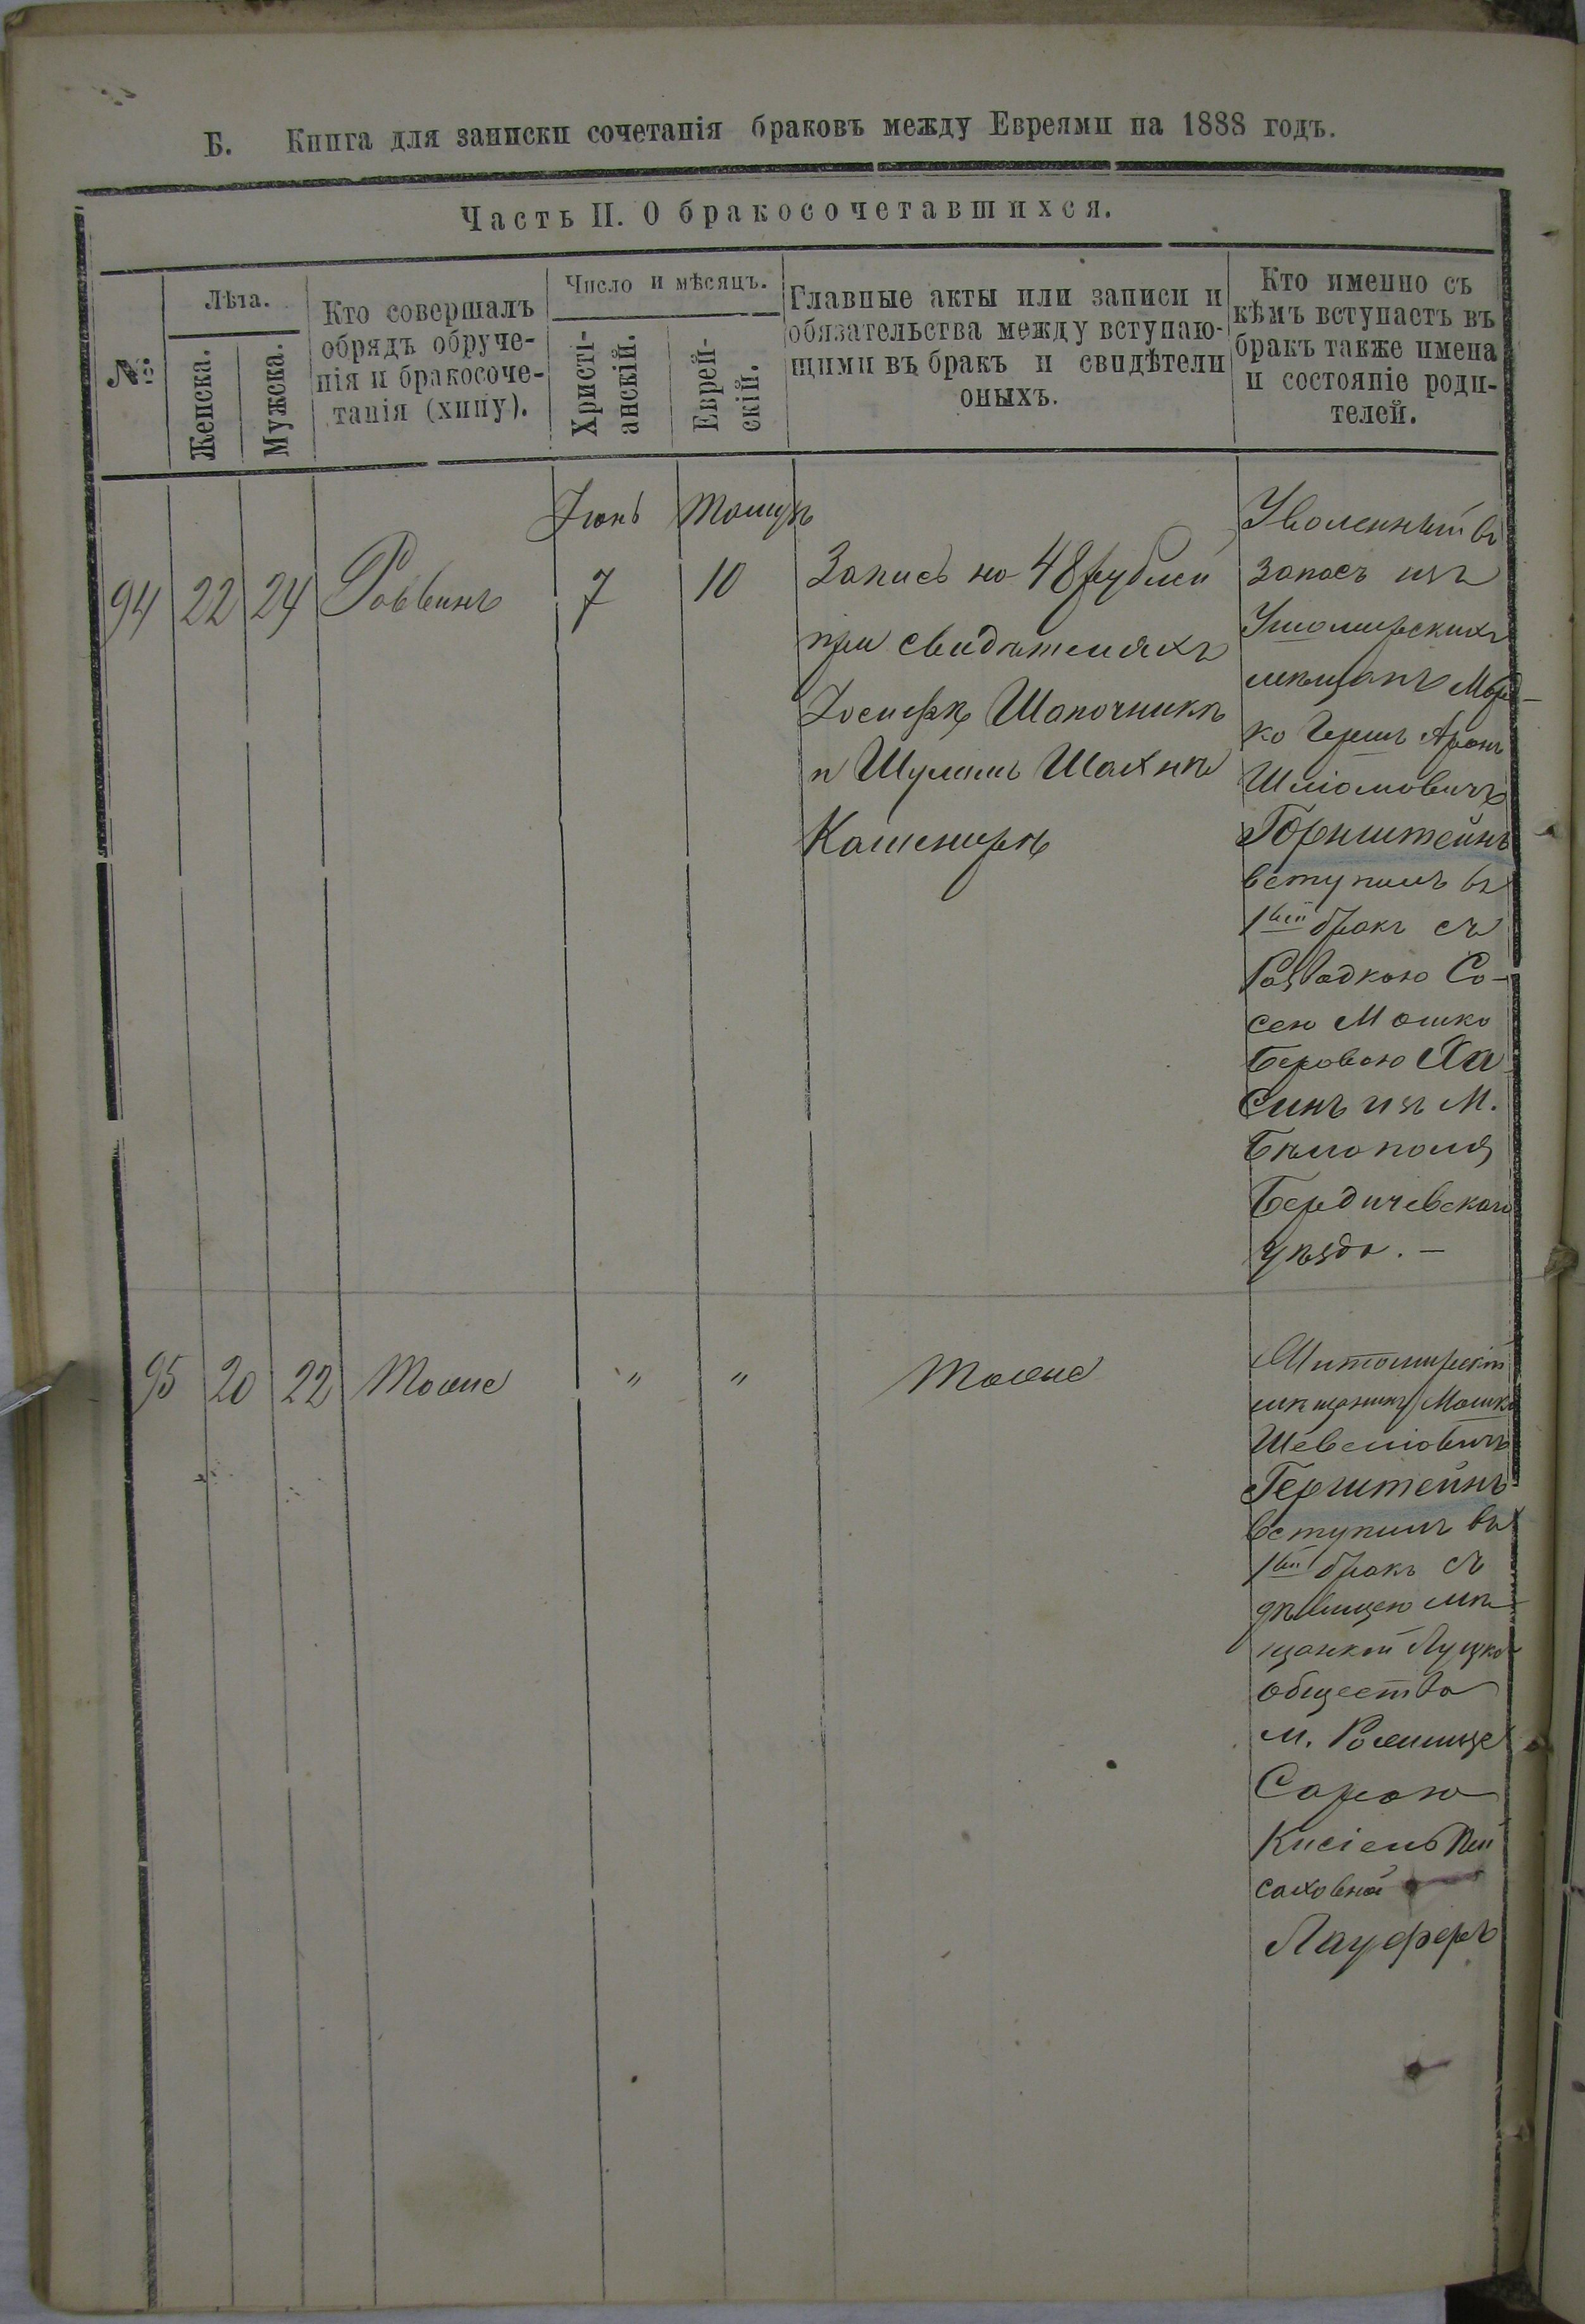 Б. Книга для записки сочетанія браковъ между Евреями на 1888 годъ.
Часть II. О бракосочетавшихся.
№
Лѣта.
Женска.
Мужска.
Кто совершалъ
обрядъ обруче-
нія и бракосоче-
танія (хипу).
Число и мѣсяцъ.
Христі-
анскій.
Еврей-
скій.
Главные акты или записи и
обязательства между вступаю-
щими въ бракъ и свидѣтели
оныхъ.
Кто именно съ
кѣмъ вступастъ въ
бракъ также имена
и состояніе роди-
телей.
Іюнь
Тамузъ
94
22
24
Раввинъ
7
10
Запись на 48 рублей
при свидѣтеляхъ
Іосифѣ Шапочникѣ
и Шулимъ Шахнѣ
Кашенирѣ
Уволенный въ
запасъ изъ
Житомирскихъ
мѣщанъ Морд-
ко Гершъ Аронъ
Шліомовичъ
Горнштейнъ
вступилъ въ
1вый бракъ съ
Розвадкою Со-
сею Мошко
Беровою Ха
Синъ изъ М.
Бѣлополя
Бердичевскаго
уѣзда. —
95
20
22
Тоже
"
"
Тоже
Житомирскій
мѣщанинъ Мошко
Шевеліовичъ
Герштейнъ
вступилъ въ
1вый бракъ съ
дѣвицею мѣ
щанкой Луцкаго
общества
м. Рожище
Сарою
Кисіель Пей
саховной
Лауферъ